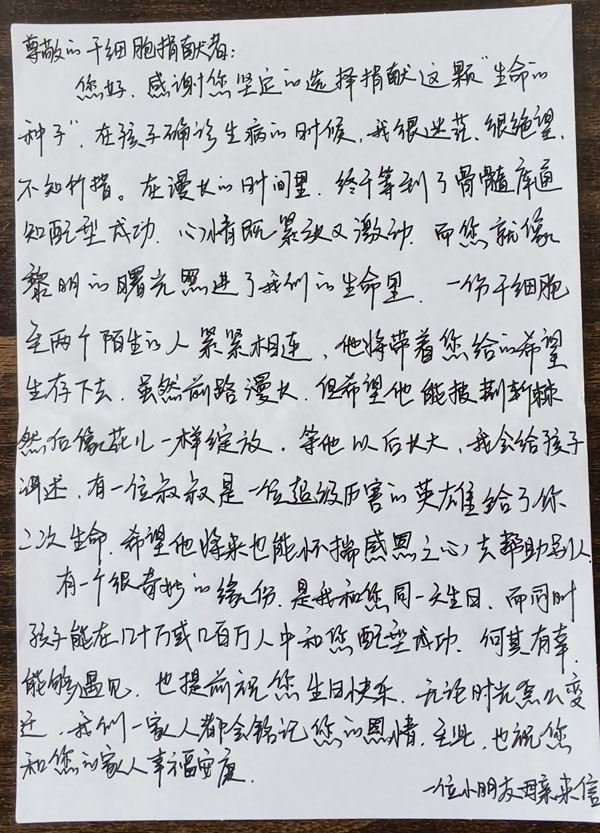 尊敬的干细胞捐献者：
您好，感谢您坚定的选择捐献这颗“生命的
种子”，在孩子确诊生病的时候，我很迷茫，很绝望，
不知所措。在漫长的时间里，终于等到了骨髓库通
知配型成功，心情既紧张又激动，而您就像
黎明的曙光照进了我们的生命里，一份干细胞
让两个陌生的人紧紧相连，他将带着您给的希望
生存下去，虽然前路漫长，但希望他能披荆斩棘
然后像花儿一样绽放，等他以后长大，我会给孩子
讲述，有一位叔叔是一位超级厉害的英雄给了你
二次生命，希望他将来也能怀揣感恩之心去帮助别人
有一个很奇妙的缘份，是我和您同一天生日，而同时
孩子能在几十万或几百万人中和您配型成功，何其有幸，
能够遇见，也提前祝您生日快乐，无论时光怎么变
迁，我们一家人都会铭记您的恩情，至此，也祝您
和您的家人幸福安康。
一位小朋友母亲来信